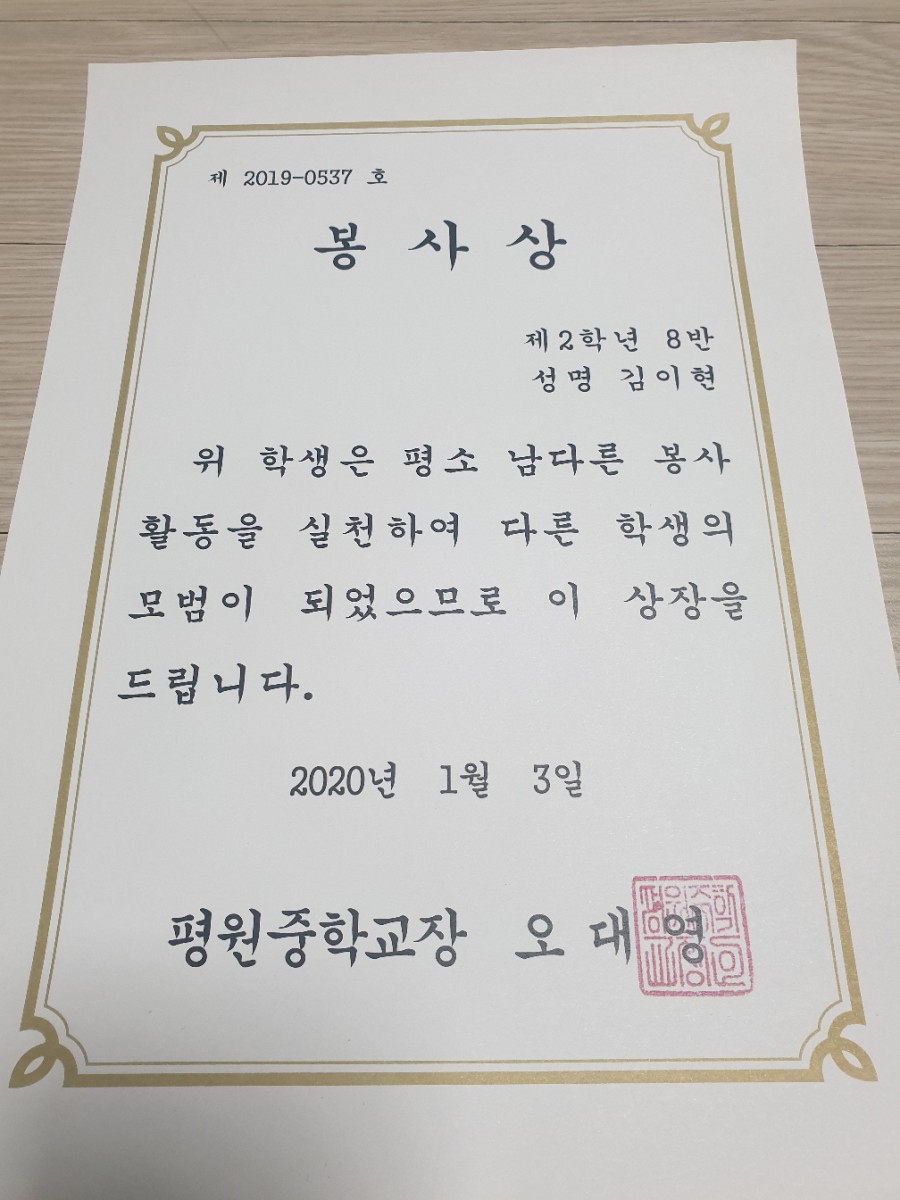 제 2019-0537 호
봉 사 상
제2학년 8반
성명 김이현
위 학생은 평소 남다른 봉사
활동을 실천하여 다른 학생의
모범이 되었으므로 이 상장을
드립니다.
2020년 1월 3일
평원중학교장 오대영